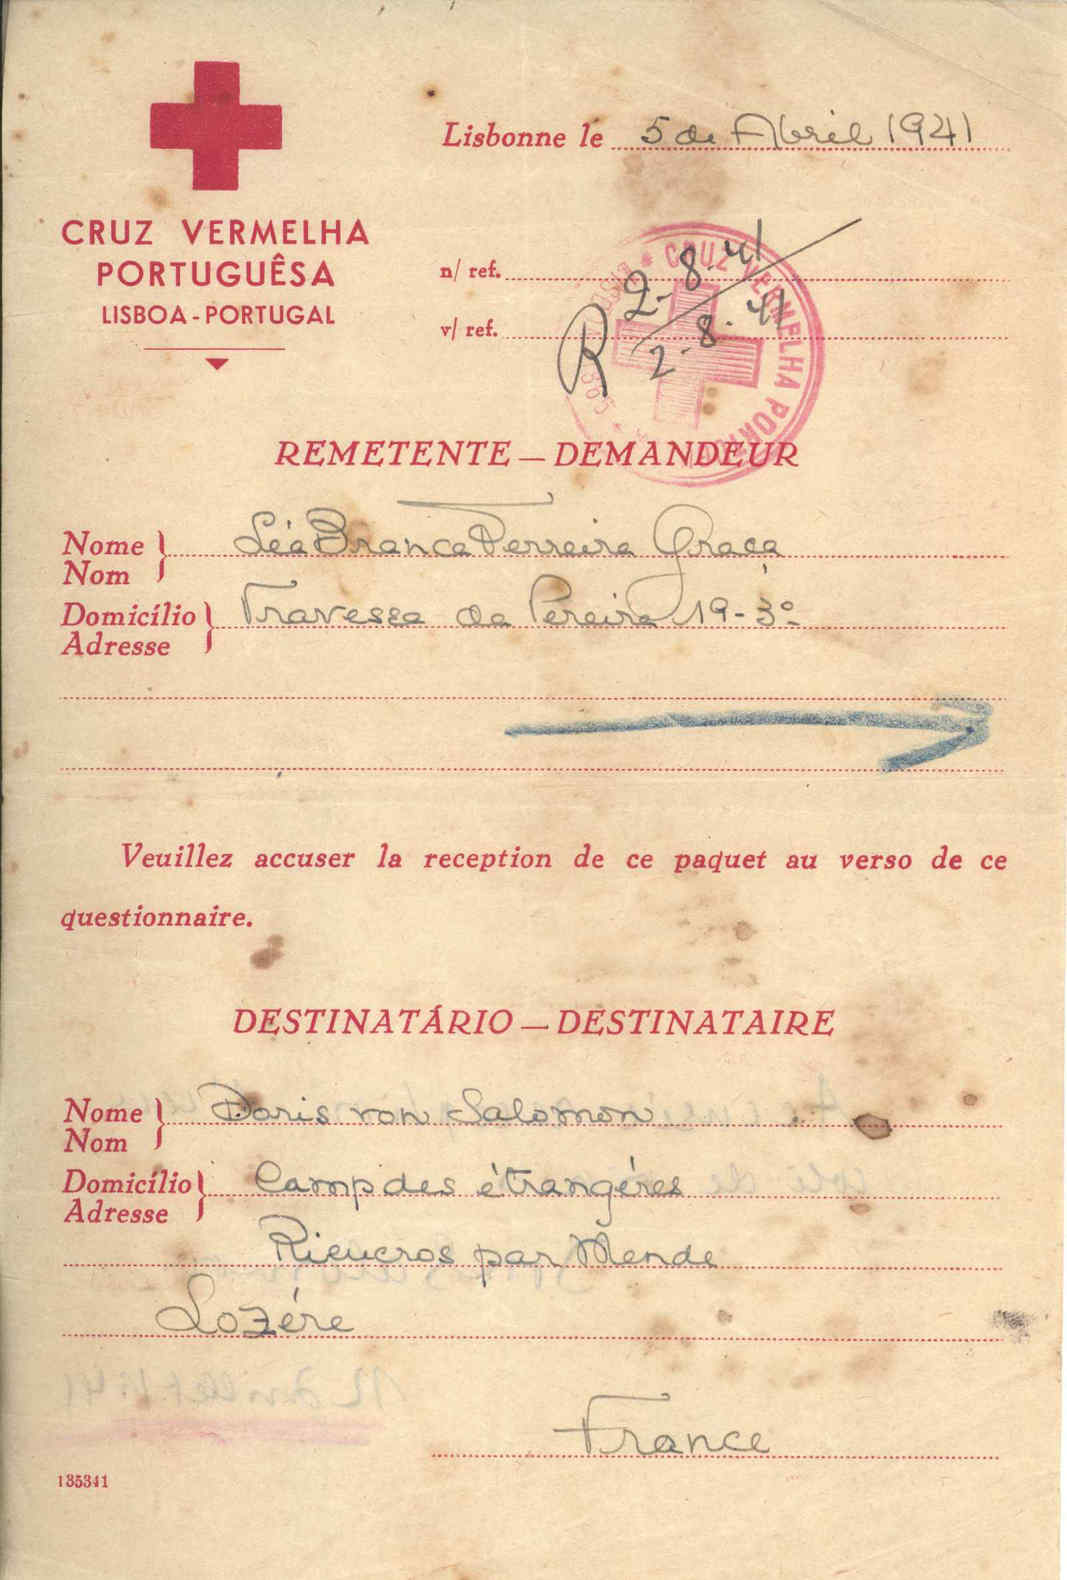 CRUZ VERMELHA
PORTUGUÊSA
LISBOA - PORTUGAL
Lisbonne le 5 de Abril 1941
n/ ref.
v/ ref.
R 2-8-41
2-8-41
CRUZ VERMELHA PORTUG
REMETENTE — DEMANDEUR
Nome
Nom
Léa Branca Ferreira Graça
Domicílio
Adresse
Travessa da Pereira 19-3º
Veuillez accuser la reception de ce paquet au verso de ce
questionnaire.
DESTINATÁRIO — DESTINATAIRE
Nome
Nom
Doris von Salomon
Domicílio
Adresse
Camp des étrangéres
Rieucros par Mende
Lozére
France
135341